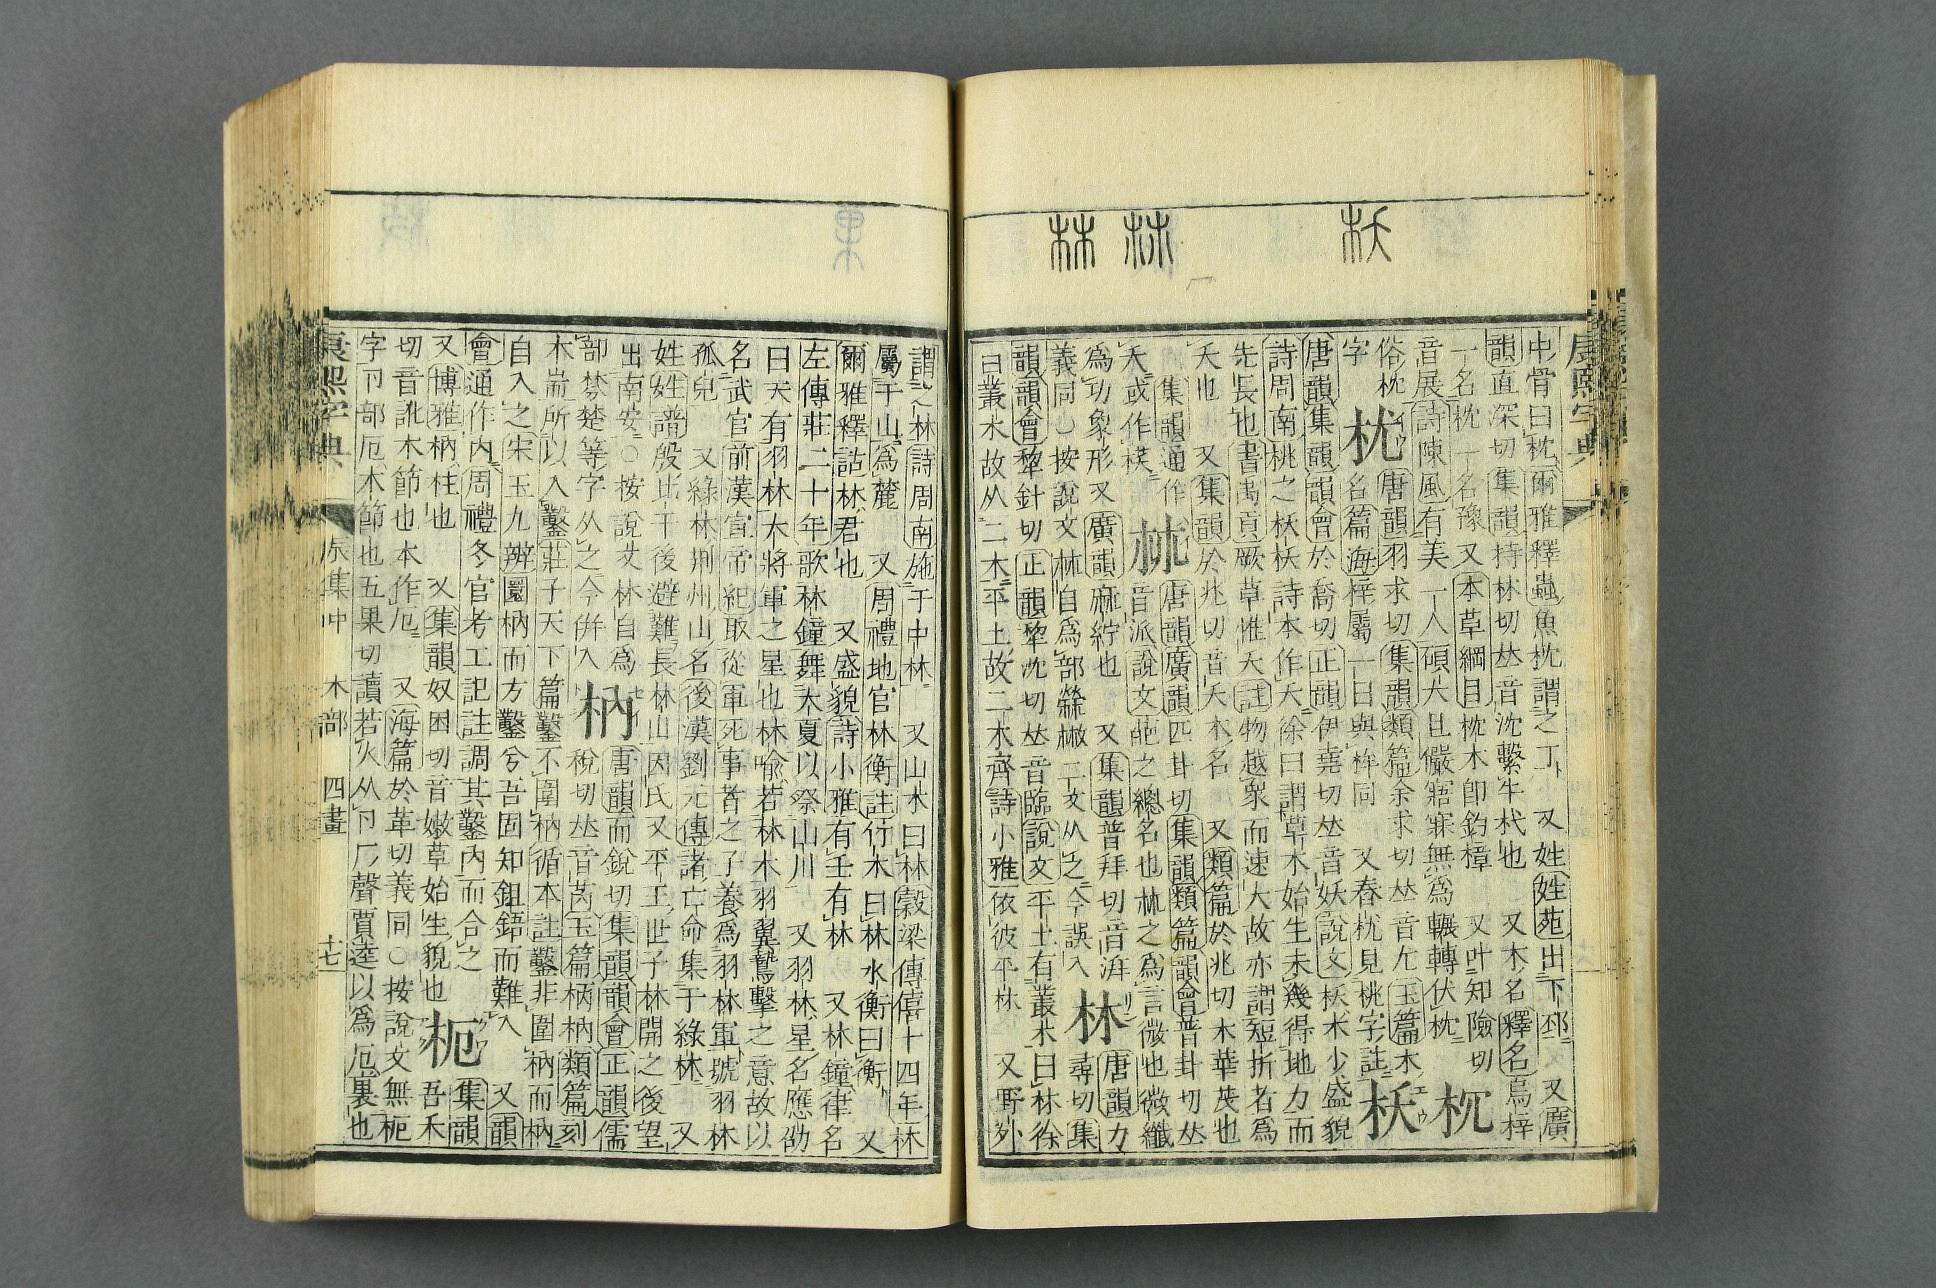 枖 𣏟 林
康熙字典
中骨曰枕爾雅釋蟲魚枕謂之丁 又姓姓苑出下邳 又廣
韻直深切集韻持林切𠀤音沈繫牛杙也 又木名釋名烏梓
一名枕一名豫 又本草綱目枕木卽釣樟 又叶知險切
音展詩陳風有美一人碩大且儼寤寐無爲輾轉伏枕
俗枕
字
唐韻羽求切集韻類篇余求切𠀤音尤玉篇木
名篇海梓屬一曰與桙同 又舂枕見桃字註
枖 エウ
唐韻集韻韻會於喬切正韻伊堯切𠀤音妖說文枖木少盛貌
詩周南桃之枖枖詩本作夭徐曰謂草木始生未幾得地力而
先長也書禹貢厥草惟夭註物越衆而速大故亦謂短折者爲
夭也 又集韻於兆切音夭木名 又類篇於兆切木華茂也
集韻通作
夭或作枖
𣏟
唐韻廣韻匹卦切集韻類篇韻會普卦切𠀤
音派說文葩之總名也𣏟之爲言微也微纖
爲功象形又廣韻麻紵也 又集韻普拜切音湃
義同○按說文𣏟自爲部𣀳二文从之今誤入
林 リン
唐韻力
尋切集
韻韻會犂針切正韻犂沈切𠀤音臨說文平土有叢木曰林徐
曰叢木故从二木平土故二木齊詩小雅依彼平林 又野外
謂之林詩周南施于中林 又山木曰林穀梁傳僖十四年林
屬于山爲麓 又周禮地官林衡註竹木曰林水衡曰衡 又
爾雅釋詁林君也 又盛貌詩小雅有壬有林 又林鐘律名
左傳莊二十年歌林鐘舞大夏以祭山川 又羽林星名應劭
曰天有羽林大將軍之星也林喩若林木羽翼鷙擊之意故以
名武官前漢宣帝紀取從軍死事者之子養爲羽林軍號羽林
孤兒 又綠林荆州山名後漢劉元傳諸亡命集于綠林 又
姓姓譜殷比干後避難長林山因氏又平王世子林開之後望
出南安○按說文林自爲
部棼楚等字从之今倂入
枘
唐韻而銳切集韻韻會正韻儒
稅切𠀤音芮玉篇柄枘類篇刻
木耑所以入鑿莊子天下篇鑿不圍枘循本註鑿非圍枘而枘
自入之宋玉九辨圜枘而方鑿兮吾固知鉏鋙而難入 又韻
會通作內周禮冬官考工記註調其鑿內而合之
又博雅枘柱也 又集韻奴困切音嫩草始生貌也
枙
集韻
吾禾
切音訛木節也本作厄 又海篇於革切義同○按說文無枙
字卪部厄木節也五果切讀若火从卪厂聲賈逵以爲厄裹也
康熙字典
辰集中 木部 四畫 十七